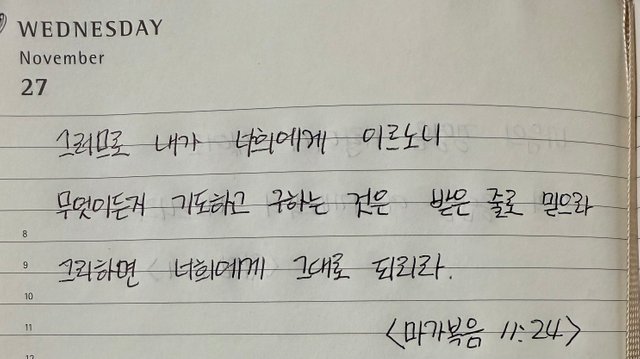 WEDNESDAY
November
27
그러므로 내가 너희에게 이르노니
무엇이든지 기도하고 구하는 것은 받은 줄로 믿으라
8
9 그리하면 너희에게 그대로 되리라.
10
11 <마가복음 11:24>
12